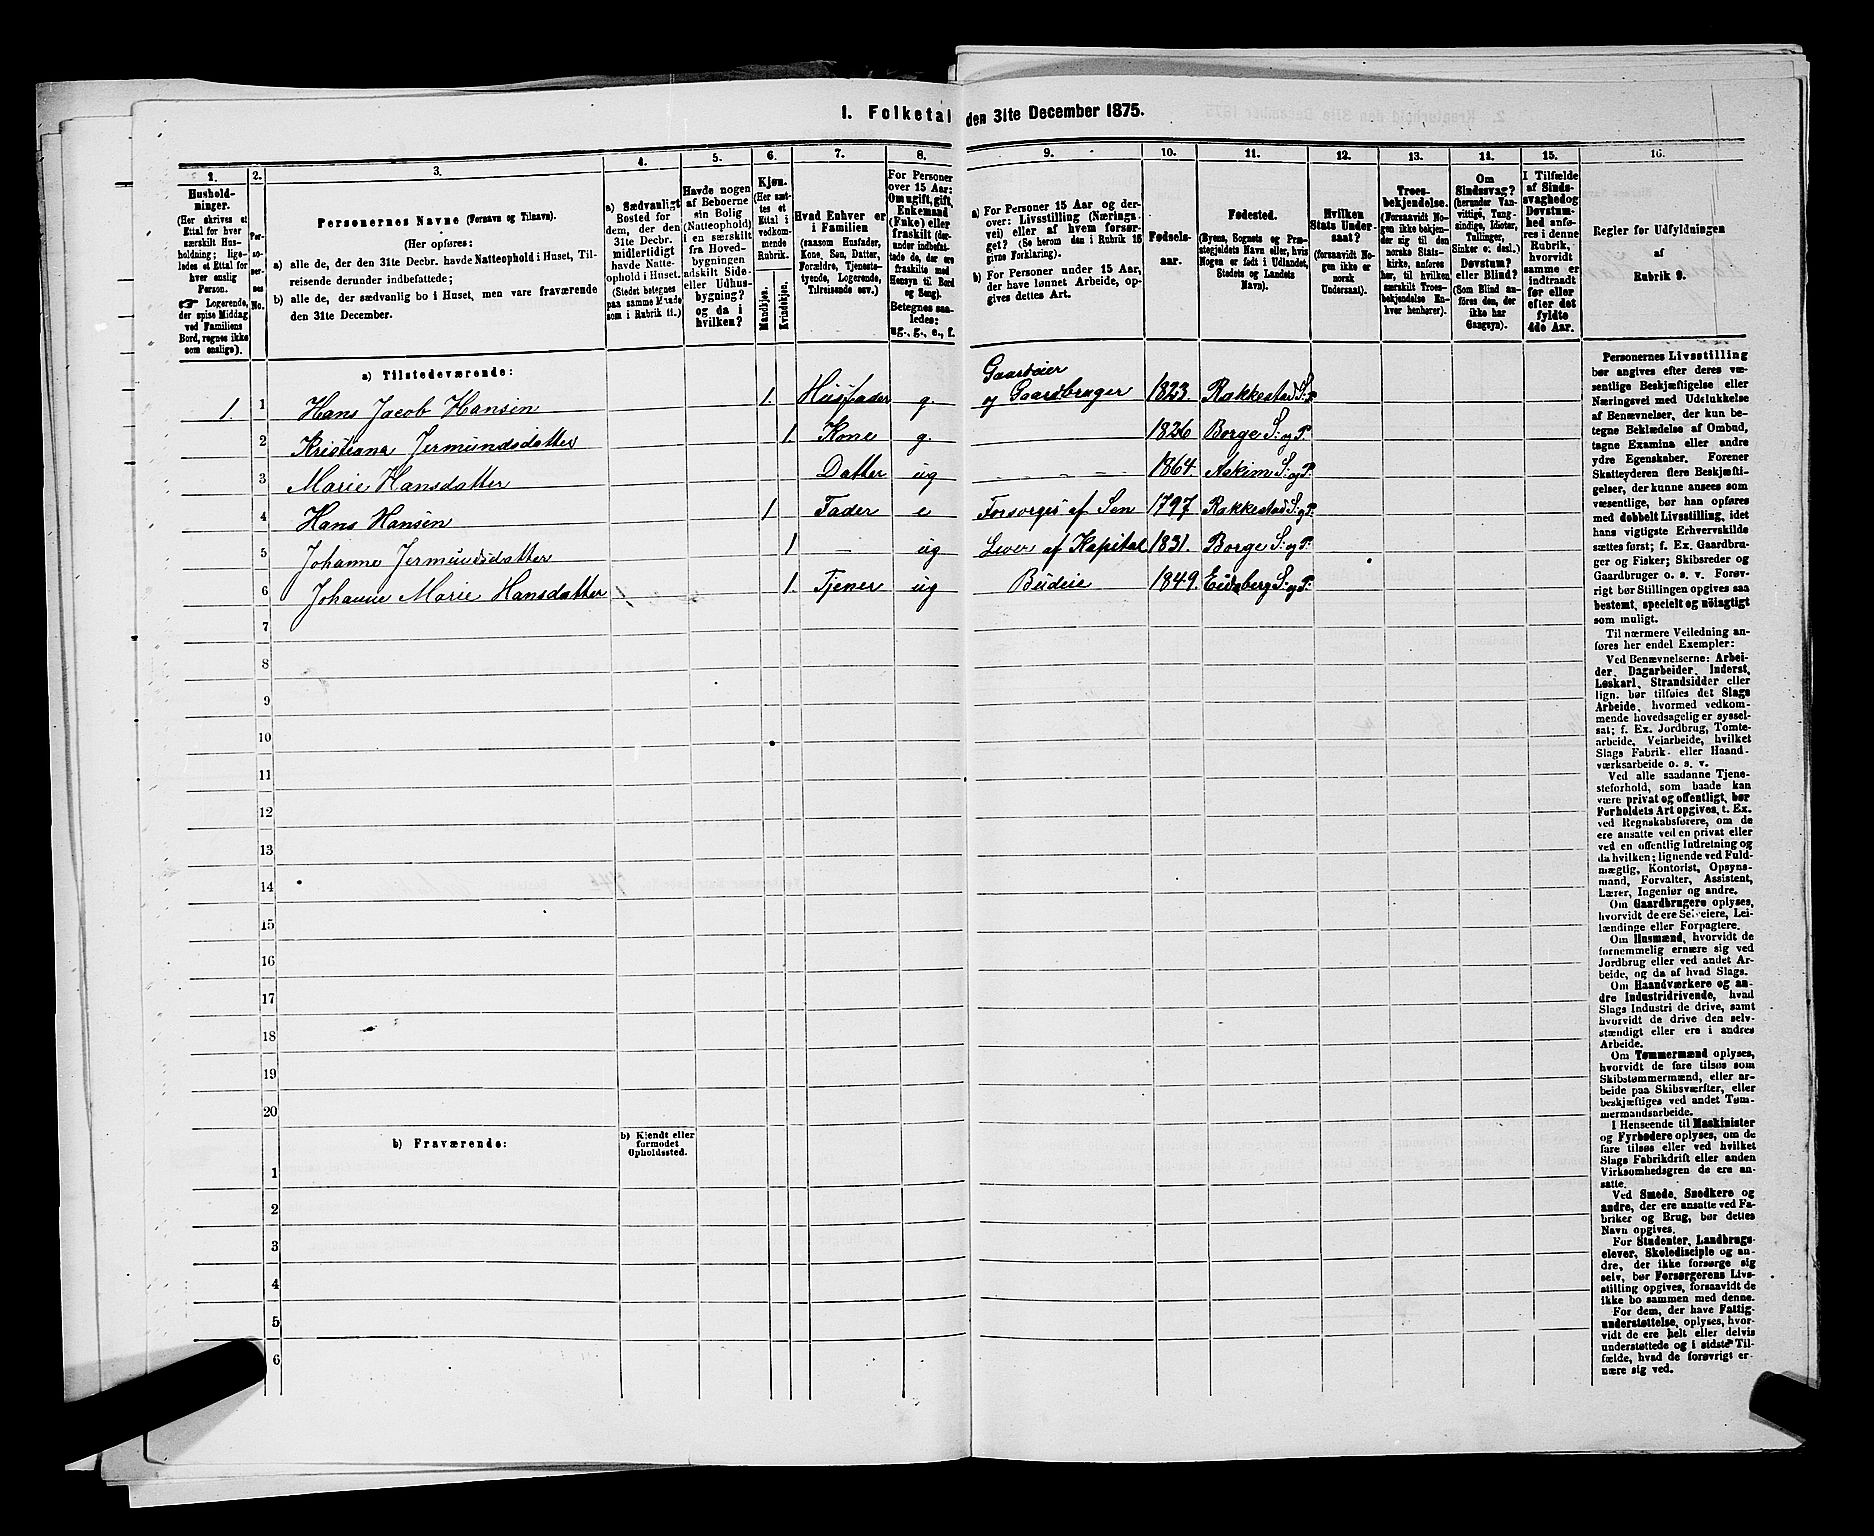 1. Folketal den 31te December 1875.
1. 2. 3. 4. 5. 6. 7. 8. 9. 10. 11. 12. 13. 14. 15. 16.
Hushold-
ninger.
(Her skrives et
Ettal for hver
særskilt Hus-
holdning; lige-
ledes et Ettal for
hver enslig
Person.
☛ Logerende,
der spise Middag
ved Familiens
Bord, regnes ikke
som enslige).
Per-
so-
ner-
nes
No.
Personernes Navne (Fornavn og Tilnavn).
(Her opføres:
a) alle de, der den 31te Decbr. havde Natteophold i Huset, Til-
reisende derunder indbefattede;
b) alle de, der sædvanlig bo i Huset, men vare fraværende
den 31te December.
a) Sædvanligt
Bosted for
dem, der den
31te Decbr.
midlertidigt
havde Natte-
ophold i Huset.
(Stedet betegnes
paa samme Maade
som i Rubrik 11.)
Havde nogen
af Beboerne
sin Bolig
(Natteophold)
i en særskilt
fra Hoved-
bygningen
adskilt Side-
eller Udhus-
bygning?
og da i
hvilken?
Kjøn.
(Her sæt-
tes et
Ettal i
vedkom-
mende
Rubrik.
Mandkjøn.
Kvindekjøn.
Hvad Enhver er
i Familien
(saasom Husfader,
Kone, Søn, Datter,
Forældre, Tjeneste-
tyende, Logerende,
Tilreisende osv.)
For Personer
over 15 Aar:
Om ugift, gift,
Enkemand
(Enke) eller
fraskilt (der-
under indbefat-
tede de, der ere
fraskilte med
Hensyn til Bord
og Seng).
Betegnes saa-
ledes:
ug., g., e., f.
a) For Personer 15 Aar og der-
over: Livsstilling (Nærings-
vei) eller af hvem forsør-
get? (Se herom den i Rubrik 16
givne Forklaring).
b) For Personer under 15 Aar,
der have lønnet Arbeide, op-
gives dettes Art.
Fødsels-
aar.
Fødested.
(Byens, Sognets og Præ-
stegjeldets Navn eller, hvis
Nogen er født i Udlandet,
Stedets og Landets
Navn).
Hvilken
Stats Under-
saat?
(forsaavidt No-
gen ikke er
norsk
Undersaat).
Troes-
bekjendelse.
(Forsaavidt No-
gen ikke bekjen-
der sig til den
norske Stats-
kirke, anføres
her, til hvilken
særskilt Troes-
bekjendelse En-
hver henhører).
Om
Sindssvag?
(herunder Van-
vittige, Tung-
sindige, Idioter,
Tullinger,
Sinker o. desl.).
Døvstum?
eller Blind?
(Som Blind an-
føres den, der
ikke har
Gangsyn).
I Tilfælde
af Sinds-
svaghed og
Døvstum-
hed anfø-
res i denne
Rubrik,
hvorvidt
samme er
indtraadt
før eller
efter det
fyldte
4de Aar.
Regler for Udfyldningen
af
Rubrik 9.
a) Tilstedeværende:
1 1 Hans Jacob Hansen 1. Husfader g Gaardeier og Gaardbruger 1823. Rakkestad S: P
2 Kristiana Jermundsdatter 1. Kone g. 1826 Borge S: og P:
3 Marie Hansdatter Datter ug 1864. Askim S: og P:
4 Hans Hansen 1 Fader e Forsørges af Søn 1797. Rakkestad S: og P:
5 Johanne Jermundsdatter 1 — ug Lever af Kapital 1831. Borge S: og P:
6 Johanne Marie Hansdatter 1. Tjener ug Budeie 1849. Eidsberg S: og P:
7
8
9
10
11
12
13
14
15
16
17
18
19
20
b) Fraværende:
b) Kjendt eller
formodet
Opholdssted.
1
2
3
4
5
6
Personernes Livsstilling
bør angives efter deres væ-
sentlige Beskjæftigelse eller
Næringsvei med Udelukkelse
af Benævnelser, der kun be-
tegne Beklædelse af Ombud,
tagne Examina eller andre
ydre Egenskaber. Forener
Skatteyderen flere Beskjæfti-
gelser, der kunne ansees som
væsentlige, bør han opføres
med dobbelt Livsstilling, idet
hans vigtigste Erhvervskilde
sættes først; f. Ex. Gaardbru-
ger og Fisker; Skibsreder og
Gaardbruger o. s. v. Forøv-
rigt bør Stillingen opgives saa
bestemt, specielt og nöiagtigt
som muligt.
Til nærmere Veiledning an-
føres her endel Exempler:
Ved Benævnelserne: Arbei-
der, Dagarbeider, Inderst,
Løskarl, Strandsidder eller
lign. bør tilføies det Slags
Arbeide, hvormed vedkom-
mende hovedsagelig er syssel-
sat; f. Ex. Jordbrug, Tomte-
arbeide, Veiarbeide, hvilket
Slags Fabrik- eller Haand-
værksarbeide o. s. v.
Ved alle saadanne Tjene-
steforhold, som baade kan
være privat og offentligt, bør
Forholdets Art opgives, t. Ex.
ved Regnskabsførere, om de
ere ansatte ved en privat eller
ved en offentlig Indretning og
da hvilken; lignende ved Fuld-
mægtig, Kontorist, Opsyns-
mand, Forvalter, Assistent,
Lærer, Ingeniør og andre.
Om Gaardbrugere oplyses,
hvorvidt de ere Selveiere, Lei-
lændinge eller Forpagtere.
Om Husmænd, hvorvidt de
fornemmelig ernære sig ved
Jordbrug eller ved andet Ar-
beide, og da af hvad Slags.
Om Haandværkere og an-
dre Industridrivende, hvad
Slags Industri de drive, samt
hvorvidt de drive den selv-
stændigt eller ere i andres
Arbeide.
Om Tømmermænd oplyses,
hvorvidt de fare tilsøs som
Skibstømmermænd, eller ar-
beide paa Skibsværfter, eller
beskjæftiges ved andet Tøm-
mermandsarbeide.
I Henseende til Maskinister
og Fyrbødere oplyses, om de
fare tilsøs eller ved hvilket
Slags Fabrikdrift eller anden
Virksomhedsgren de ere an-
satte.
Ved Smede, Snedkere og
andre, der ere ansatte ved Fa-
briker og Brug, bør dettes
Navn opgives.
For Studenter, Landbrugs-
elever, Skoledisciple og an-
dre, der ikke forsørge sig
selv, bør Forsørgerens Livs-
stilling opgives, forsaavidt de
ikke bo sammen med denne.
For dem, der have Fattig-
understøttelse, oplyses, hvor-
vidt de ere helt eller delvis
understøttede og i sidste Til-
fælde, hvad de forøvrigt er-
nære sig ved.